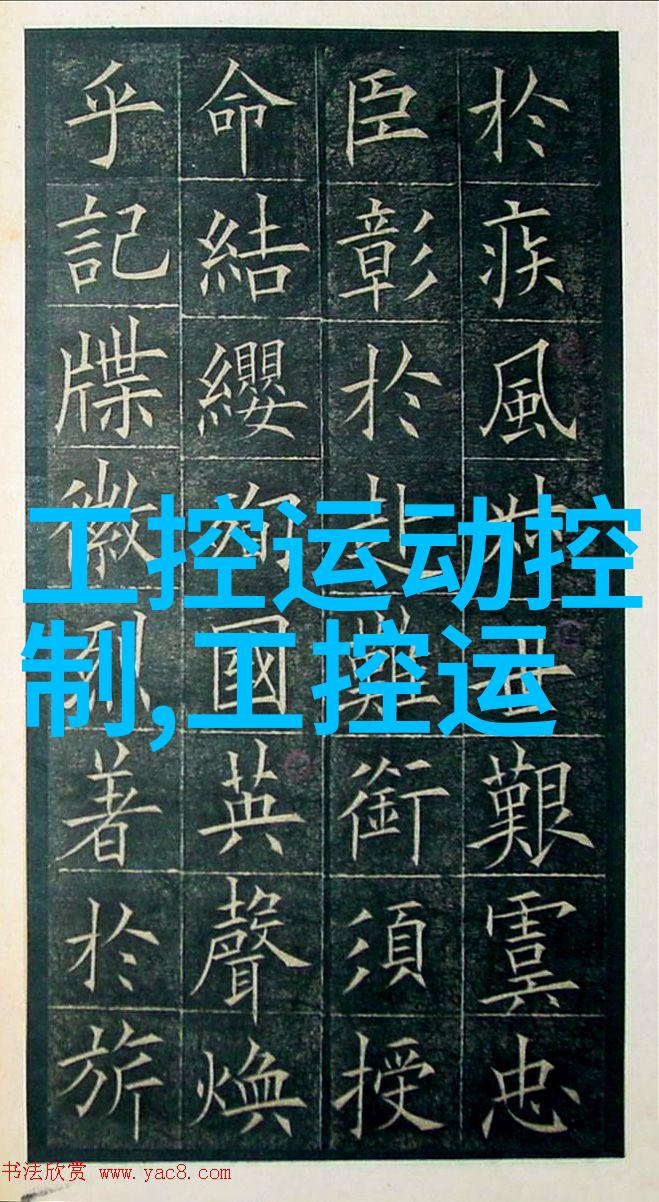 於疾風叔世艱虞忠
臣彰於赴難銜須授
命結纓殉國英聲煥
乎記牒徽烈著於旂
工控运动控
制,工控运
书法欣赏 www.yac8.com